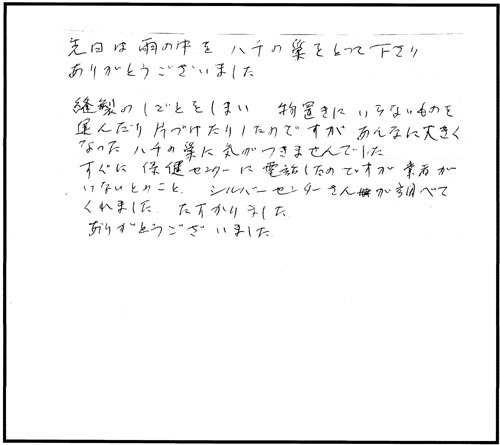 先日は雨の中を ハチの巣をとって下さり
ありがとうございました
縫製のしごとをしまい 物置きに いらないものを
運んだり 片づけたりしたのですが あんなに大きく
なった ハチの巣に気がつきませんでした
すぐに 保健センターに電話したのですが 業者が
いないとのこと、 シルバーセンターさんが調べて
くれました、 たすかりました
ありがとうございました